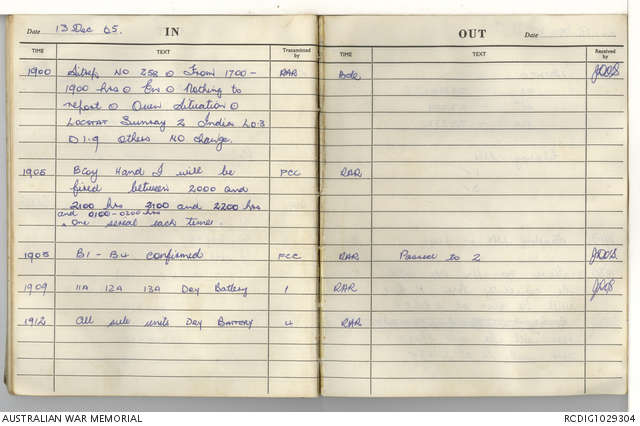 Date 13 Dec 65. IN
TIME TEXT Transmitted by
1900 Sitrep NO 258 0 From 1700 - RAR
1900 hrs 0 En 0 Nothing to
report 0 Own Situation 0
LOCSTAT Sunray 2 India L0.3
D 1.9 others NO change.
1905 B Coy Hand I will be FCC
fired between 2000 and
2100 hrs 2100 and 2200 hrs
and 0100-0200 hrs
one serial each time.
1905 B1 - B4 confirmed FCC
1909 11A 12A 13A Dry Battery 1
1912 All sub units Dry Battery 4
OUT Date
TIME TEXT Received by
Bde.
RAR
RAR Passed to 2
RAR
RAR
AUSTRALIAN WAR MEMORIAL RCDIG1029304